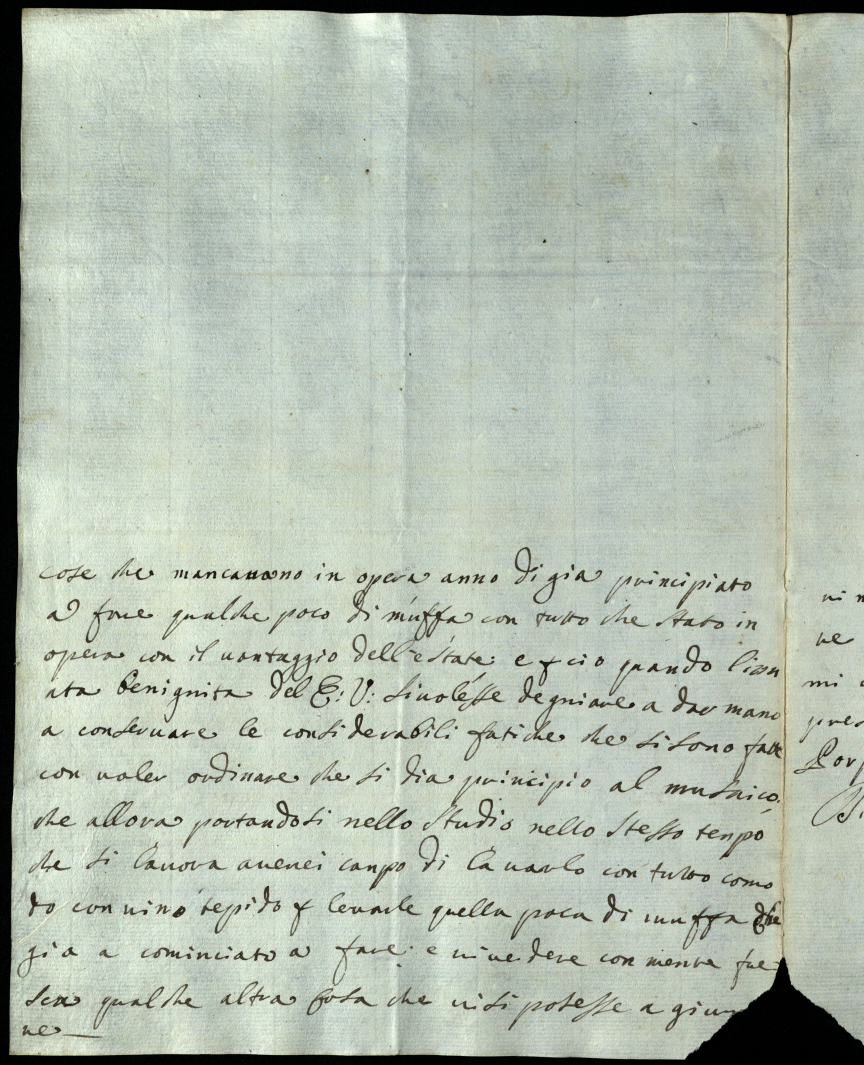 cose che mancauano in opera anno di gia principiato
a fare qualche poco di muffa con tutto che stato in
opera con il uantaggio dell'estate e p cio quando l'inn
ata benignita del E: V: si uolesse degniare a dar mano
a conseruare le considerabili fatiche che si sono fatte
con uoler ordinare che si dia principio al musaico
che allora portandosi nello studio nello stesso tenpo
che si lauora auerei canpo di lauarlo con tutto como
do con uino tepido p leuarle quella poca di muffa che
gia a cominciato a fare: e riuedere con mente fre
sca qualche altra cosa che ui si potesse a giun
ne
ui
ue
mi
pres